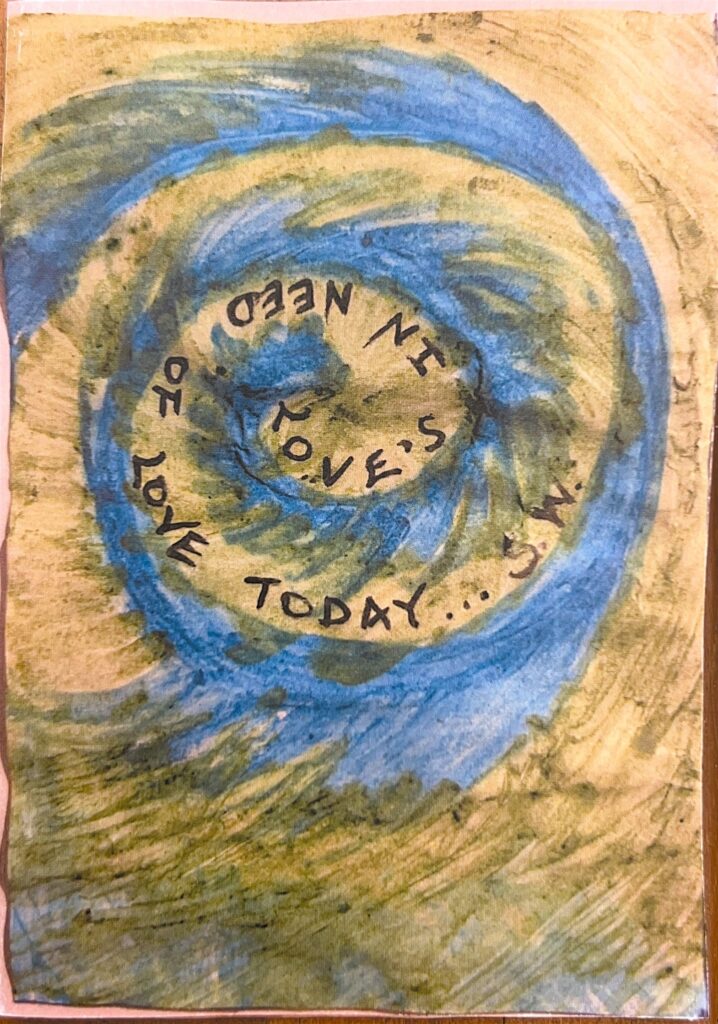 LOVE'S
IN NEED OF LOVE TODAY... S.W.